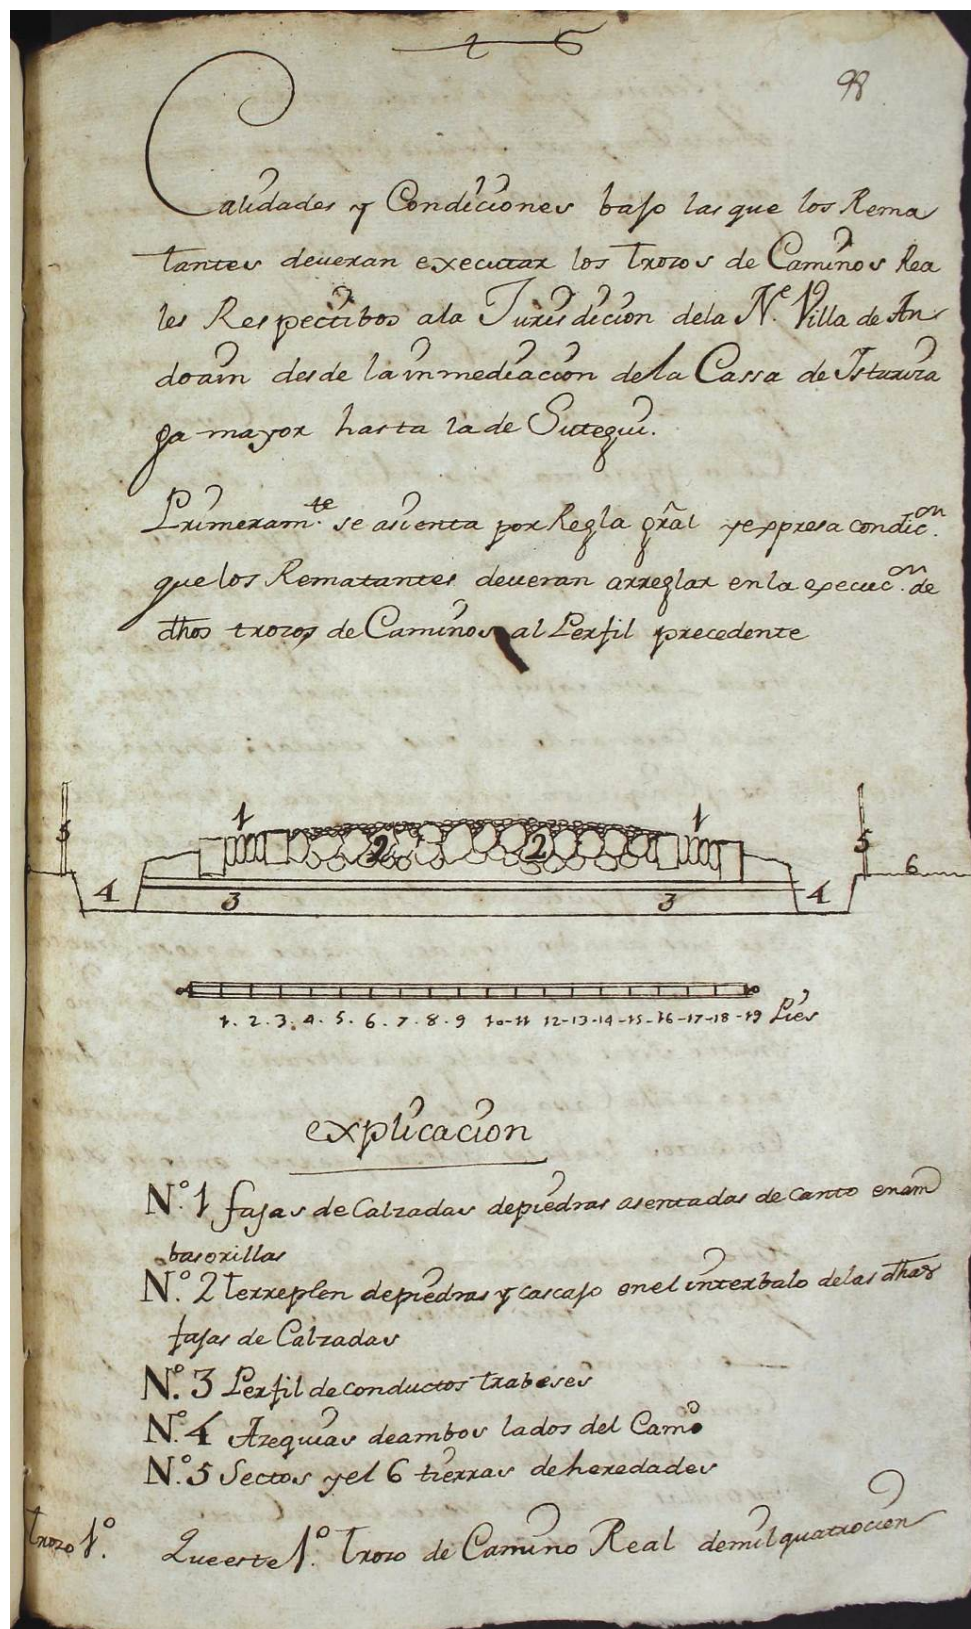 98
Calidades y Condiciones bajo las que los Rema
tantes deveran executar los trozos de Caminos Rea
les Respectibos ala Jurisdicion dela N.e Villa de An
doain desde la inmediacion dela Cassa de Isturiza
ga mayor hasta la de Sutegui.
Primeram.te se asienta por Regla gral y expresa condic.on
que los Rematantes deveran arreglar en la execuc.on de
dhos trozos de Caminos al Perfil precedente
1 1
5 2 2 5
6
4 3 3 4
1. 2. 3. 4. 5. 6. 7. 8. 9 10-11 12-13-14-15-16-17-18-19 Pies
explicacion
N.o 1 fajas de Calzadas depiedras asentadas de canto enam
bas orillas
N.o 2 terreplen depiedras y cascajo en el interbalo delas dhas
fajas de Calzadas
N.o 3 Perfil de conductos trabeses
N.o 4 Azequias deambos lados del Camo
N.o 5 Sectos y el 6 tierras de heredades
trozo 1.o Que este 1.o trozo de Camino Real demil quatrocien